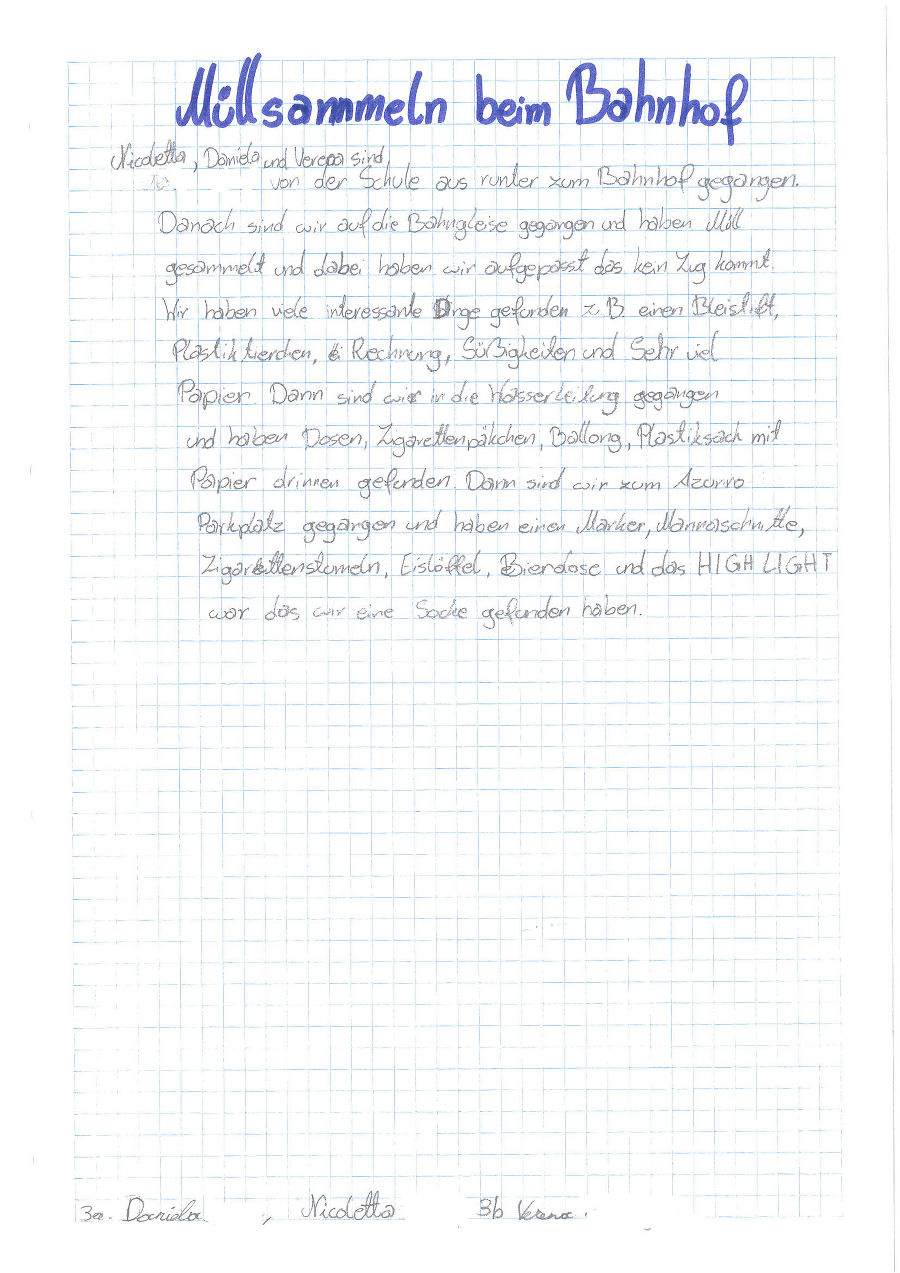 Müllsammeln beim Bahnhof
Nicoletta, Daniela und Verena sind
von der Schule aus runter zum Bahnhof gegangen.
Danach sind wir auf die Bahngleise gegangen und haben Müll
gesammelt und dabei haben wir aufgepasst das kein Zug kommt.
Wir haben viele interessante Dinge gefunden z.B einen Bleistift,
Plastiktierchen, Rechnung, Süßigkeiten und Sehr viel
Papier. Dann sind wir in die Wasserleitung gegangen
und haben Dosen, Zigarettenpäkchen, Ballong, Plastiksack mit
Papier drinnen gefunden. Dann sind wir zum Azurro
Parkplatz gegangen und haben einen Marker, Mannaschnitte,
Zigarettenstumeln, Eislöffel, Bierdose und das HIGHLIGHT
war das wir eine Socke gefunden haben.
3a. Daniela, Nicoletta 3b Verena.